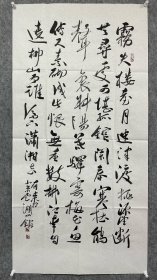 霧失樓台月迷津渡桃源望斷
無尋處可堪孤館閉春寒杜鵑
聲裏斜陽暮驛寄梅花魚
傳尺素砌成此恨無重數郴江幸自
遶郴山為誰流下瀟湘去